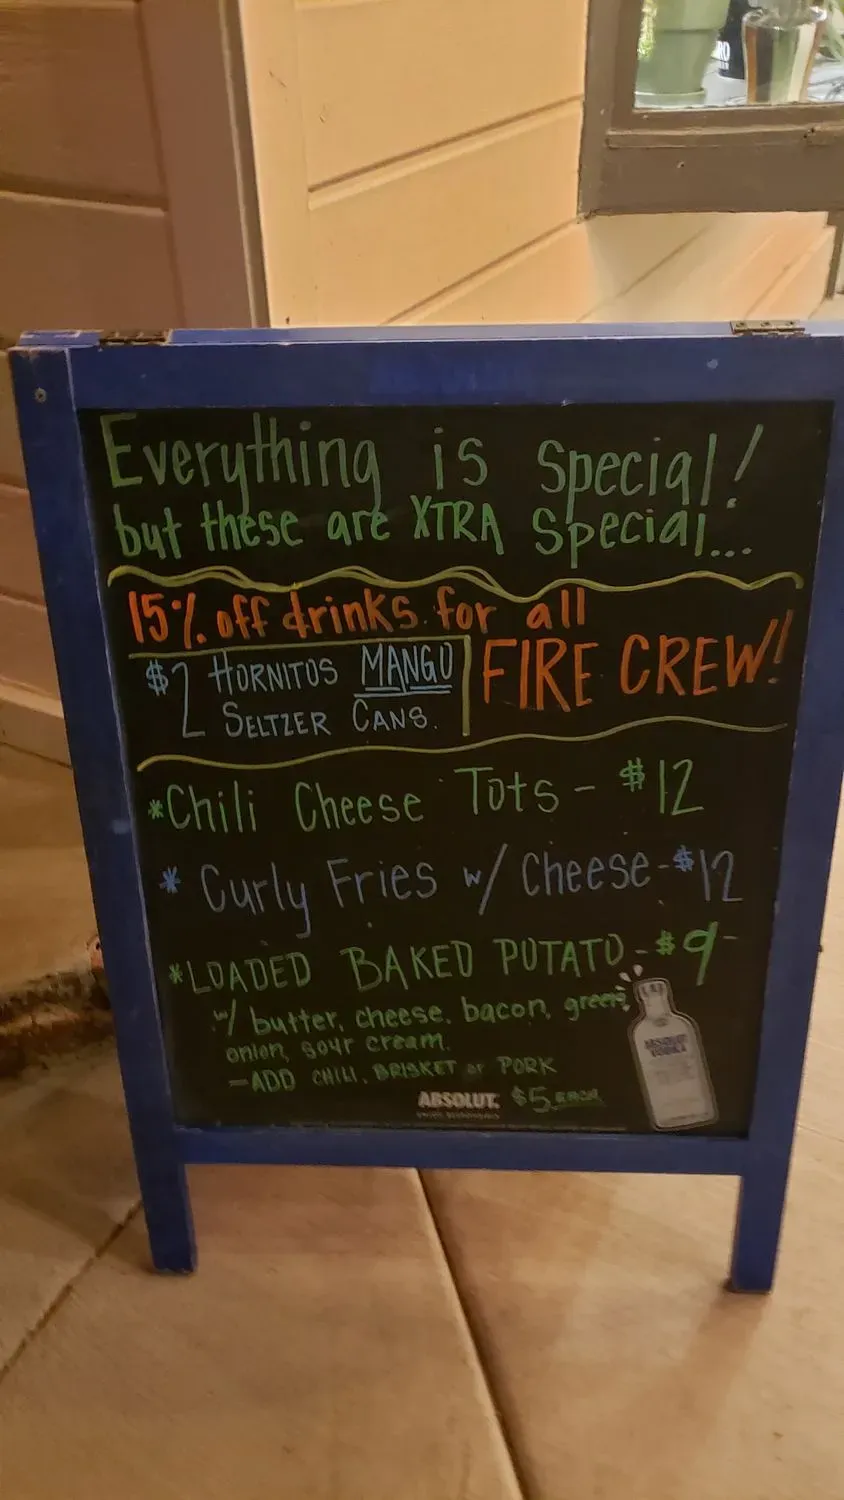 Everything is Special!
but these are XTRA Special...
15% off drinks for all
FIRE CREW!
$2 HORNITOS MANGO
SELTZER CANS.
*Chili Cheese Tots - $12
* Curly Fries w/ Cheese - $12
*LOADED BAKED POTATO - $9-
w/ butter, cheese, bacon, green
onion, sour cream.
- ADD CHILI, BRISKET or PORK
$5 EACH
ABSOLUT
ABSOLUT
VODKA